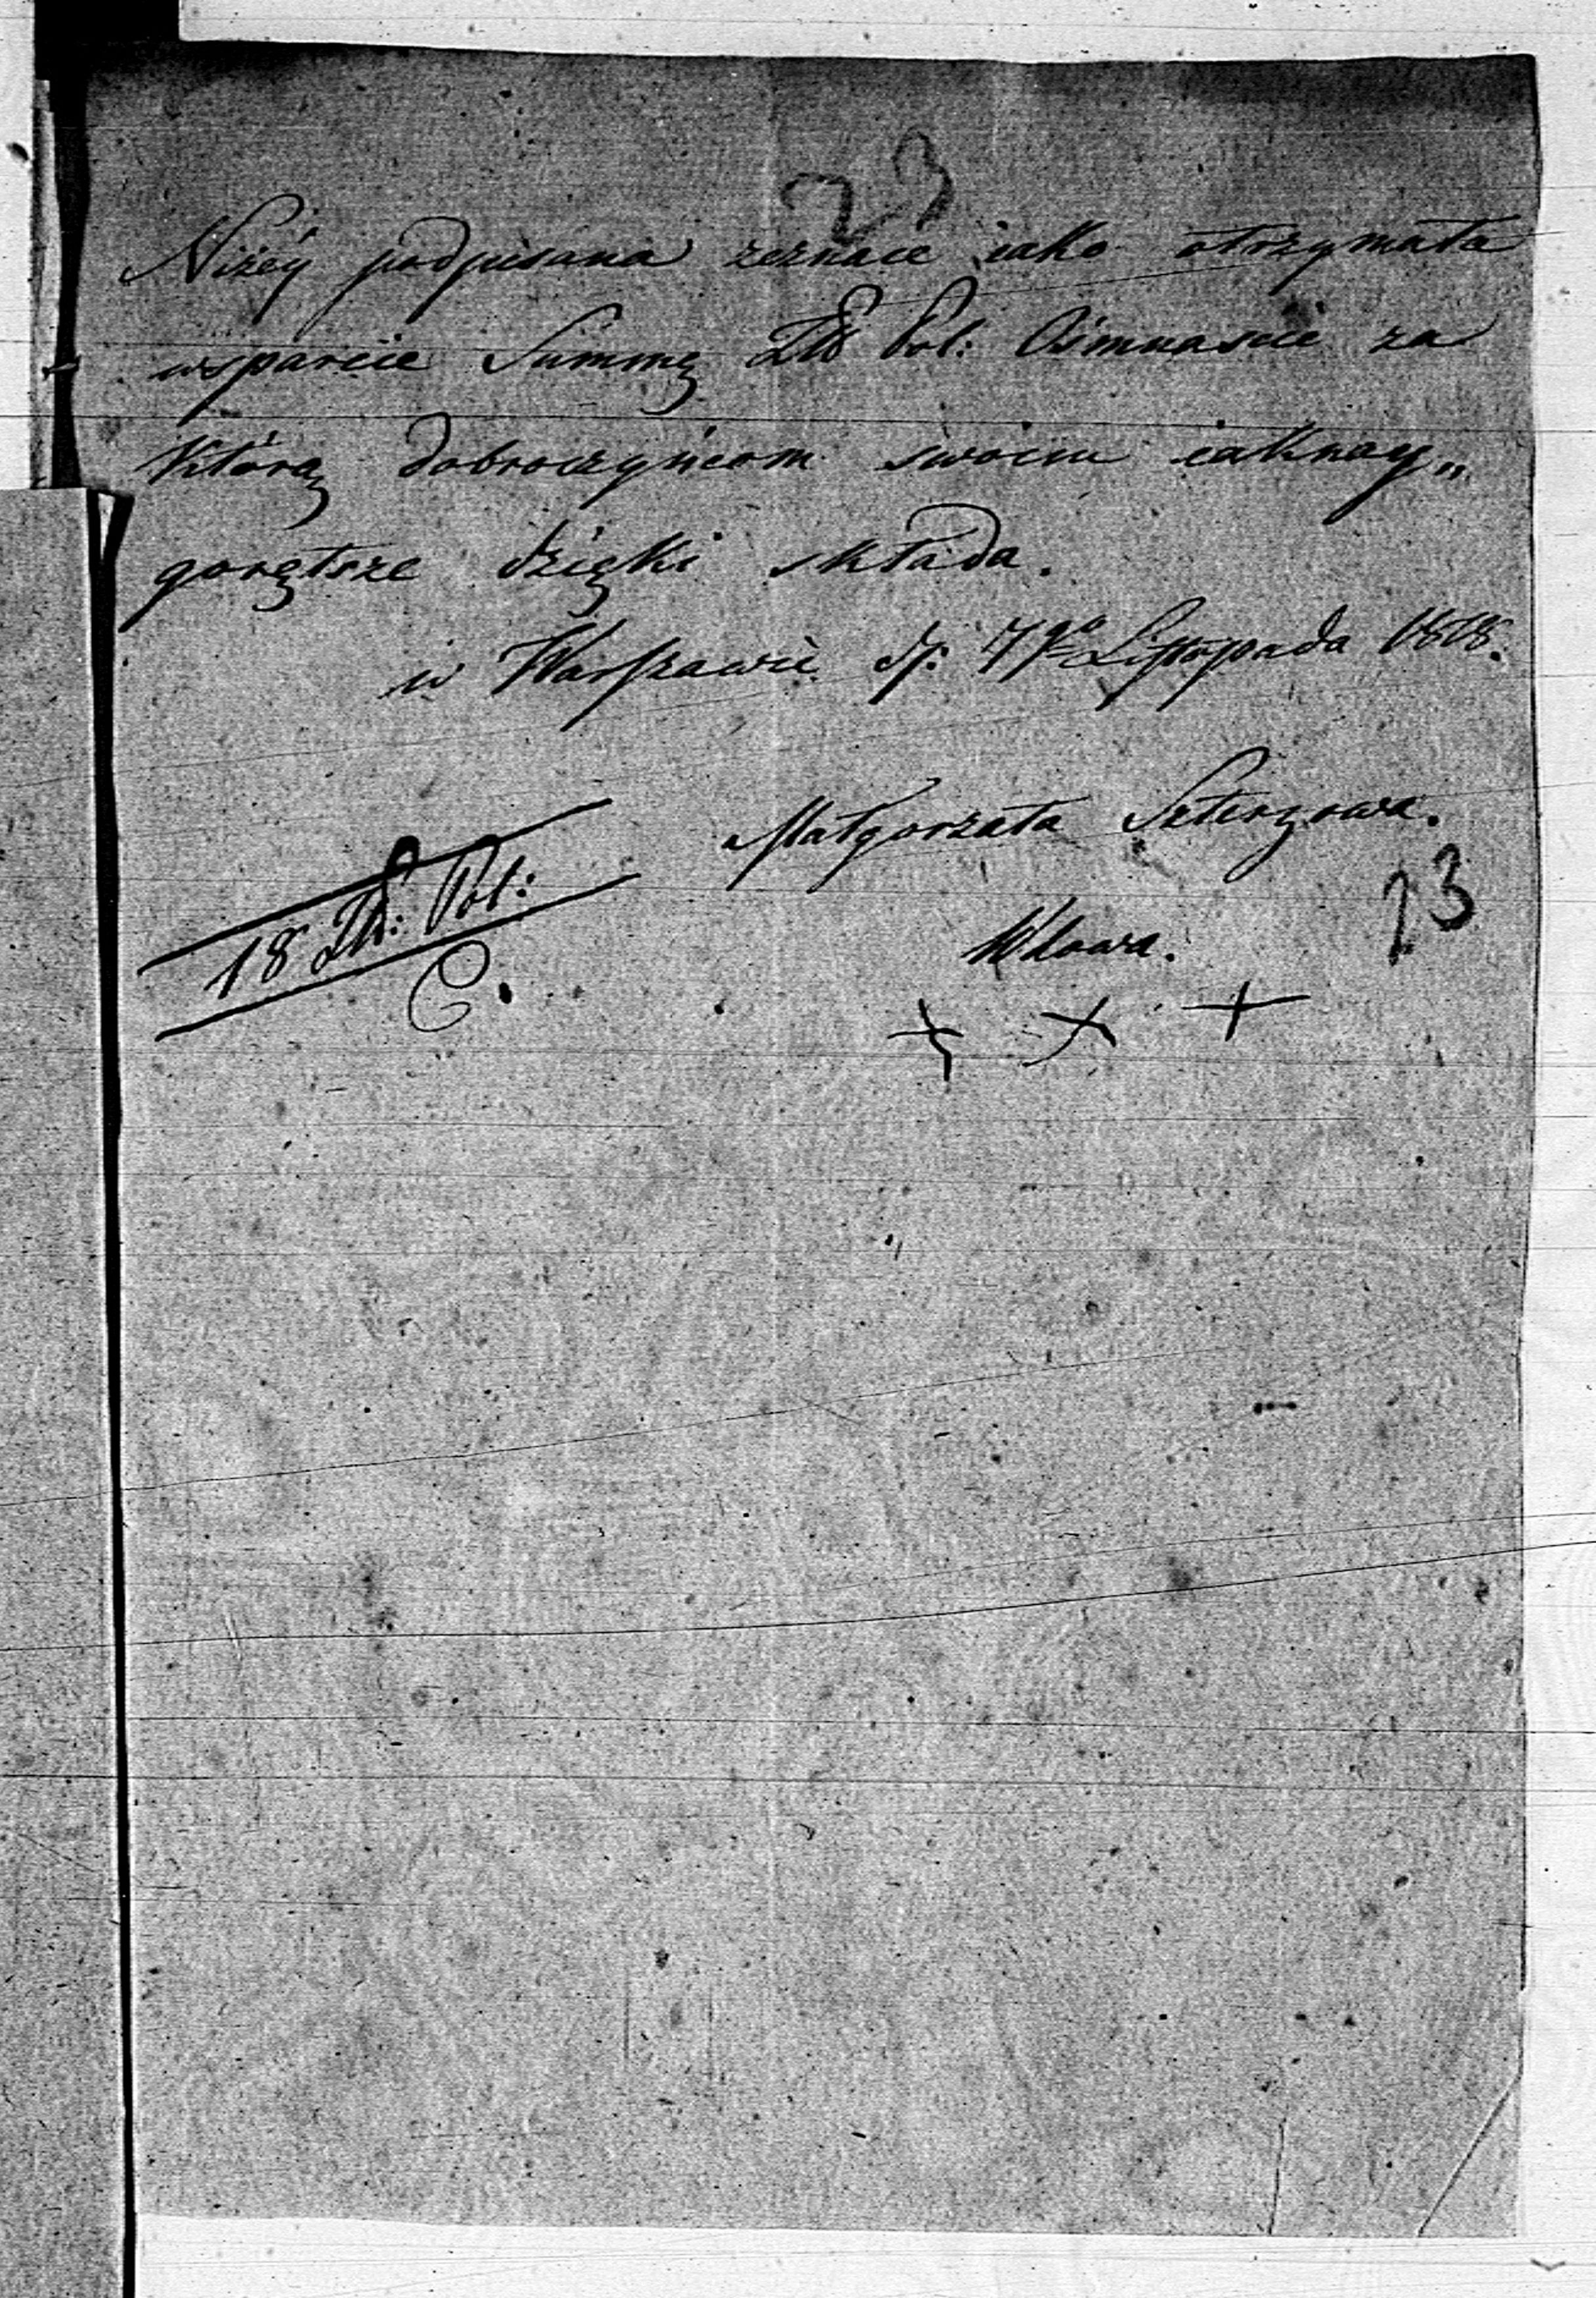 23
Niżey podpisana zeznaie iako otrzymała
wsparcie Summę Złł Pol: Ośmnaście za
Którą dobroczyńcom swoim iaknay„
gorętsze dzięki składa.
w Warszawie d: 7go Listopada 1818.
Małgorzata Szterzowa.
23
18 Złł: Pol:
C.
Wdowa.
+ + +